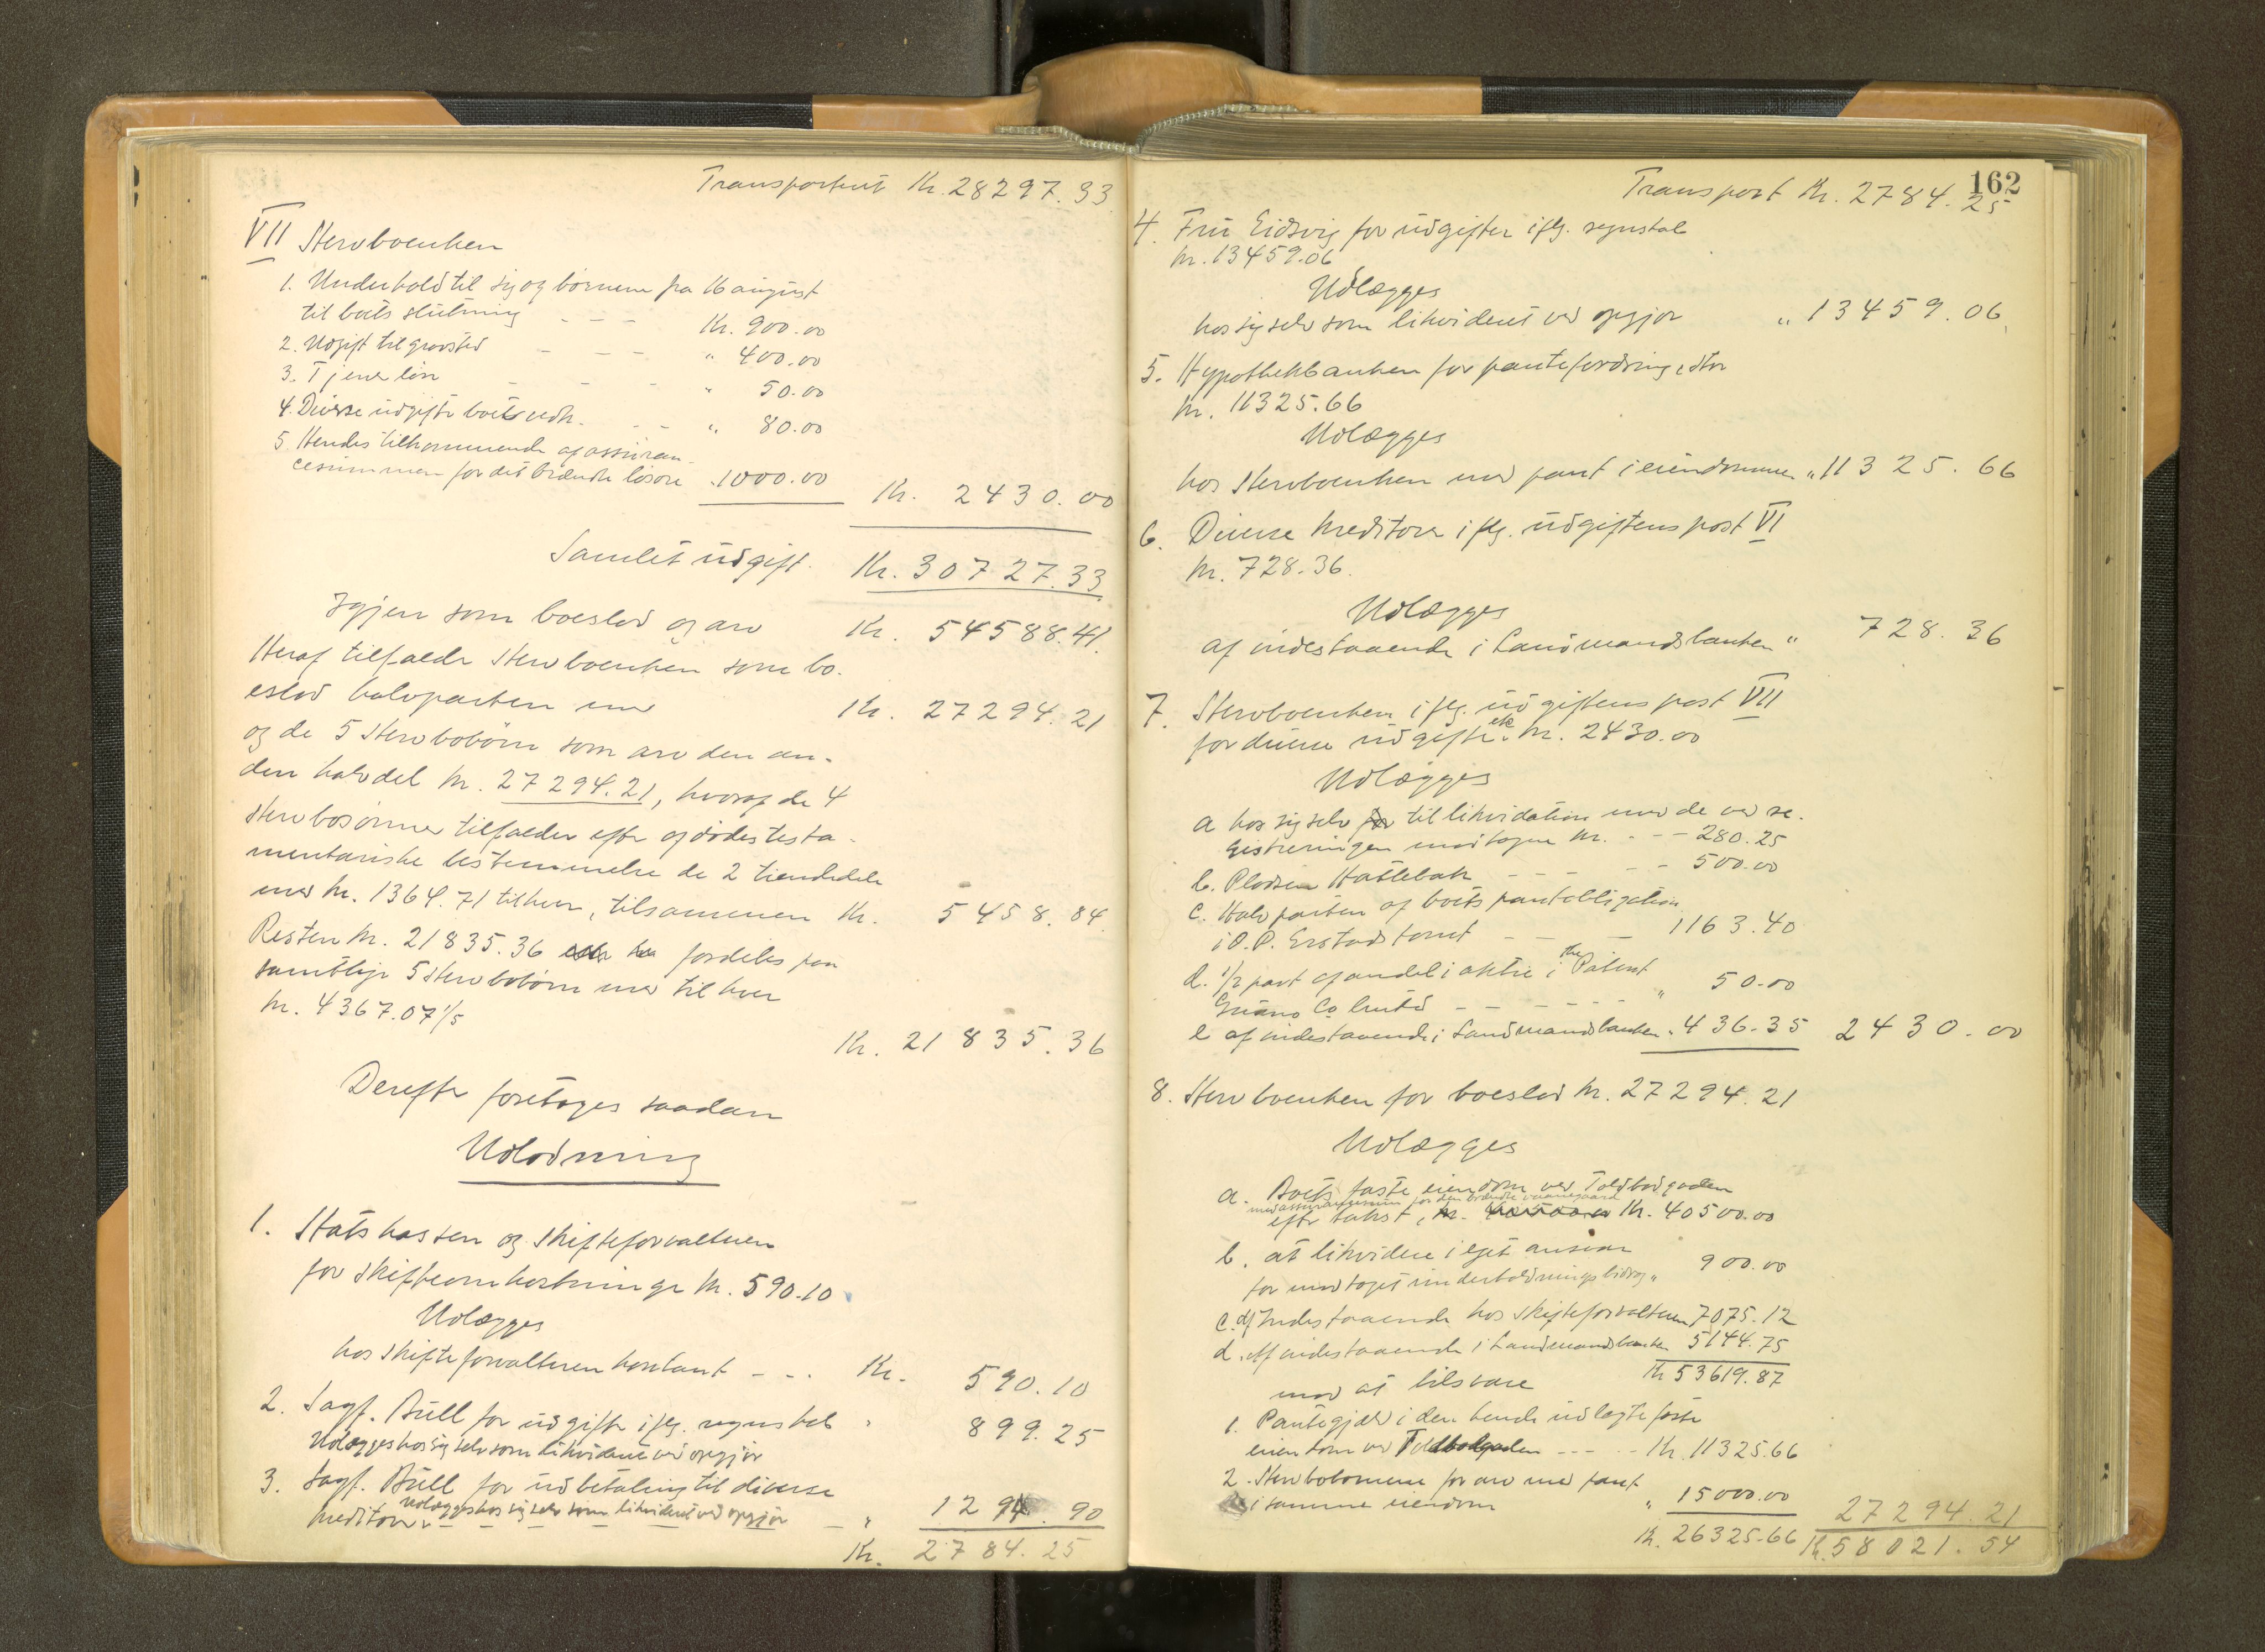 Transportert Kr. 28297.33
VII Stervboenken
1. Underhold til sig og börnene fra 16 august
til boets slutning - - - Kr. 900.00
2. Udgift til gravsted - - - " 400.00
3. Tjenerlön - - - " 50.00
4. Diverse udgifter boet vedk. - - " 80.00
5. Hendes tilkommende af assuran-
cesummen for det brændte lösöre " 1000.00 Kr. 2430.00
Samlet udgift. Kr. 30727.33
Igjen som boeslod og arv Kr. 54588.41
Heraf tilfalder Stervboenken som bo-
eslod halvparten med Kr. 27294.21
og de 5 Stervbobörn som arv den an-
den halvdel Kr. 27294.21, hvoraf de 4
Stervbosönner tilfalder efter afdödes testa-
mentariske bestemmelse de 2 tiendedele
med Kr. 1364.71 til hver, tilsammen Kr. 5458.84
Resten Kr. 21835.36 fordeles paa
samtlige 5 Stervbobörn med til hver
Kr. 4367.07 1/5
Kr. 21835.36
Derefter foretoges saadan
Udlodning
1. Statskassen og Skifteforvalteren
for skifteomkostninger Kr. 590.10
Udlægges
hos skifteforvalteren kontant - - . Kr. 590.10
2. Sagf. Büll for udgifter iflg. regnskab " 899.25
Udlægges hos sig selv som likvideret ved opgjör
3. Sagf. Büll for udbetaling til diverse
kreditorer. Udlægges hos sig selv som likvideret ved opgjör - " 1294.90
Kr. 2784.25
162
Transport Kr. 2784.25
4. Fru Eidsvig for udgifter iflg. regnskab
Kr. 13459.06
Udlægges
hos sig selv som likvideret ved opgjör " 13459.06
5. Hypothekbanken for pantefordring, stor
Kr. 11325.66
Udlægges
hos Stervboenken med pant i eiendommen " 11325.66
6. Diverse kreditorer iflg. udgiftens post VI
Kr. 728.36
Udlægges
af indestaaende i Landmandsbanken " 728.36
7. Stervboenken iflg. udgiftens post VII
for diverse udgifter etc Kr. 2430.00
Udlægges
a hos sig selv til likvidation med de ved re-
gistreringen modtagne Kr. - - - 280.25
b. Pladsen Hatlebak - - - - - 500.00
c. Halvparten af boets pantobligation
i O. P. Erstads - - - 1163.40
d. 1/2 part af andel i aktie i The Patent
Guano Co limited - - - - - - " 50.00
e af indestaaende i Landmandsbanken " 436.35 2430.00
8. Stervboenken for boeslod Kr. 27294.21
Udlægges
a. Boets faste eiendom ved Toldbodgaden
med assurancesum for den brændte vaaningsgaard
efter takst, Kr. 40500.00
b. at likvidere i eget ansvar
for modtaget underholdningsbidrag " 900.00
c. af Indestaaende hos skifteforvalteren 7075.12
d. Af indestaaende i Landmandsbanken 5144.75
Kr 53619.87
mod at tilsvare
1. Pantegjæld i den hende udlagte faste
eiendom ved Toldbodgaden - - - - Kr. 11325.66
2. Stervbobörnene for arv med pant
i samme eiendom " 15000.00
Kr. 26325.66 27294.21
Kr. 58021.54